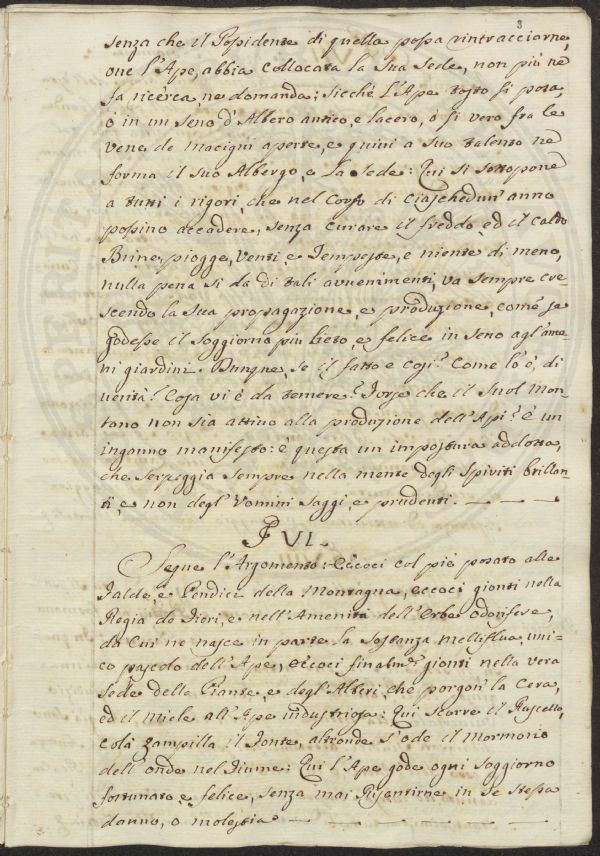 3
senza che il Possidente di quella possa rintracciarne,
oue l'Ape, abbia collocata la Sua Sede, non più ne
fa ricerca, ne domanda; sicchè L'Ape tosto si posa,
ò in un seno d'Albero antico, e lacero, ò si vero fra le
vene de Macigni aperte, e quiui a suo talento ne
forma il suo Albergo, e la sede: Qui si sottopone
a tutti i rigori, che nel Corso di Ciaschedun' anno
possino accadere, senza curare il freddo, ed il caldo
Brine, piogge, Venti, e Tempeste, e niente di meno,
nulla pena si da di tali auuenimenti, va sempre cre-
scendo la Sua propagazione, e produzione, come se
godesse il soggiorno più lieto, e felice in seno agl'ame-
ni giardini. Dunque, se il fatto e così? Come lo è, di
uerità! Cosa vi è da temere? Forse che il Suol Mon-
tano non sia attiuo alla produzione dell'Api? è un
inganno manifesto: è questa un impostura addotta,
che serpeggia sempre nella mente degli spiriti brillan-
ti, e non degl'Vomini saggi, e prudenti.
§ VI.
Segue l'Argomento: Eccoci col piè posato alle
Falde, e Pendici della Montagna, eccoci gionti nella
Regia de Fiori, e nell'Amenità dell'Erbe Odorifere,
da Cui ne nasce in parte la Sostanza melliflua, uni-
co pascolo dell'Ape, eccoci finalm.e gionti nella vera
sede delle Piante, e degl'Alberi, che porgon' la Cera,
ed il Miele all'Ape industriosa: Qui scorre il Ruscello,
colà zampilla il fonte, altronde s'ode il Mormorio
dell'onde nel Fiume: Qui l'Ape gode ogni soggiorno
fortunato e felice, senza mai Risentirne in se stessa
danno, o molestia